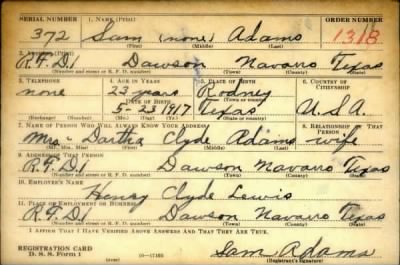 SERIAL NUMBER 1. NAME (Print) ORDER NUMBER
372 Sam (none) Adams 1318
(First) (Middle) (Last)
2. ADDRESS (Print)
R.F.D.1 Dawson Navarro Texas
(Number and street or R. F. D. number) (Town) (County) (State)
3. TELEPHONE 4. AGE IN YEARS 5. PLACE OF BIRTH 6. COUNTRY OF CITIZENSHIP
none 23 years Rodney
DATE OF BIRTH (Town or county)
5-23-1917 Texas U.S.A.
(Exchange) (Number) (Mo.) (Day) (Yr.) (State or country)
7. NAME OF PERSON WHO WILL ALWAYS KNOW YOUR ADDRESS 8. RELATIONSHIP OF THAT PERSON
Mrs. Clyde Adams wife
(Mr., Mrs., Miss) (First) (Middle) (Last)
9. ADDRESS OF THAT PERSON
R.F.D.1 Dawson Navarro Texas
(Number and street or R. F. D. number) (Town) (County) (State)
10. EMPLOYER'S NAME
Henry Clyde Lewis
11. PLACE OF EMPLOYMENT OR BUSINESS
R.F.D.1 Dawson Navarro Texas
(Number and street or R. F. D. number) (Town) (County) (State)
I AFFIRM THAT I HAVE VERIFIED ABOVE ANSWERS AND THAT THEY ARE TRUE.
REGISTRATION CARD
D. S. S. Form 1 Sam Adams
(Registrant's signature)